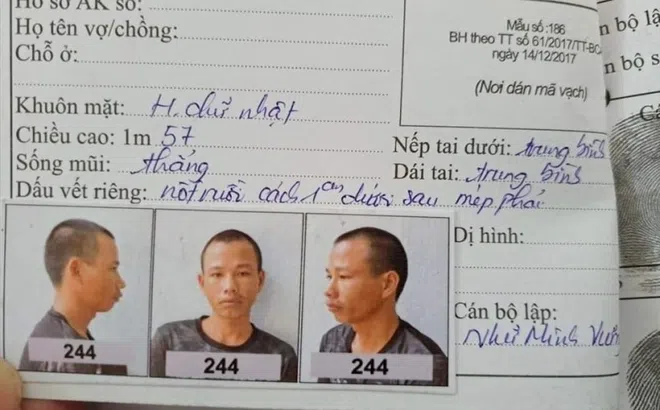 Hồ sơ AK số:
Họ tên vợ/chồng:
Chỗ ở:
Mẫu số :186
BH theo TT số 61/2017/TT-BC
ngày 14/12/2017
(Nơi dán mã vạch)
n bộ lậ
n bộ s
Khuôn mặt: H. chữ nhật
Chiều cao: 1m 57
Nếp tai dưới: trung bình
Sống mũi: thẳng
Dái tai: trung bình
Dấu vết riêng: nốt ruồi cách 1cm dưới sau mép phải
Dị hình:
Cán bộ lập:
Như Minh
244
244
244